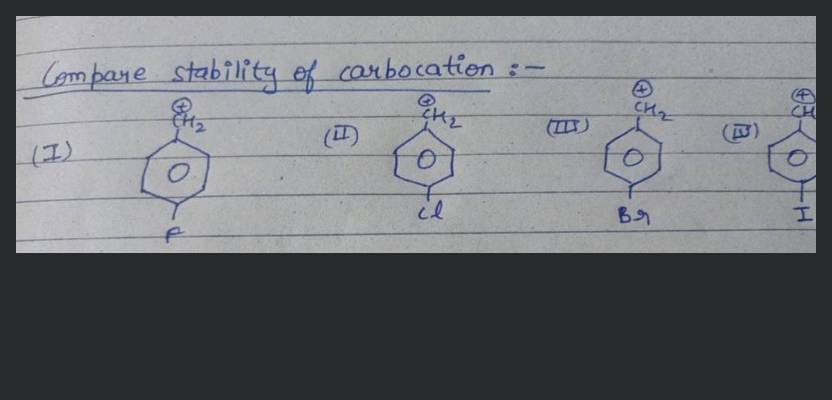 Compare stability of carbocation :-
(I) ⊕ CH2 F
(II) ⊕ CH2 Cl
(III) ⊕ CH2 Br
(IV) ⊕ CH I